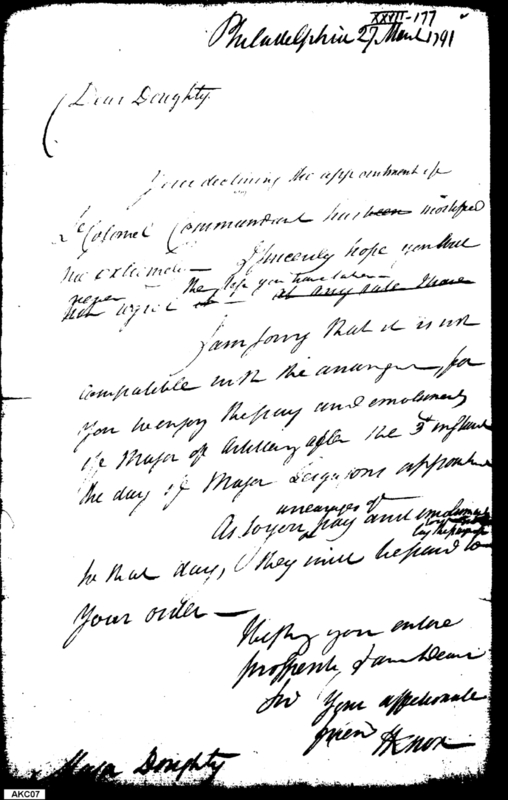 XXVII-177
Philadelphia 27 March 1791
Dear Doughty.
Your declining the appointment of
Lt Colonel Commandant has been mortified
me extremely — I sincerely hope you will
never the step you have taken —
not regret at any rate I have
I am sorry that it is not
compatible with the arrangem for
you to enjoy the pay and emoluments
of Major of Artillery after the 3d instant
the day of Major Fergusons appointm
arrearages of
As to your pay and emoluments
to that day, they will be paid to
Your order —
Wishing you entire
prosperity, I am Dear
Sir Your affectionate
friend HKnox
Major Doughty
AKC07